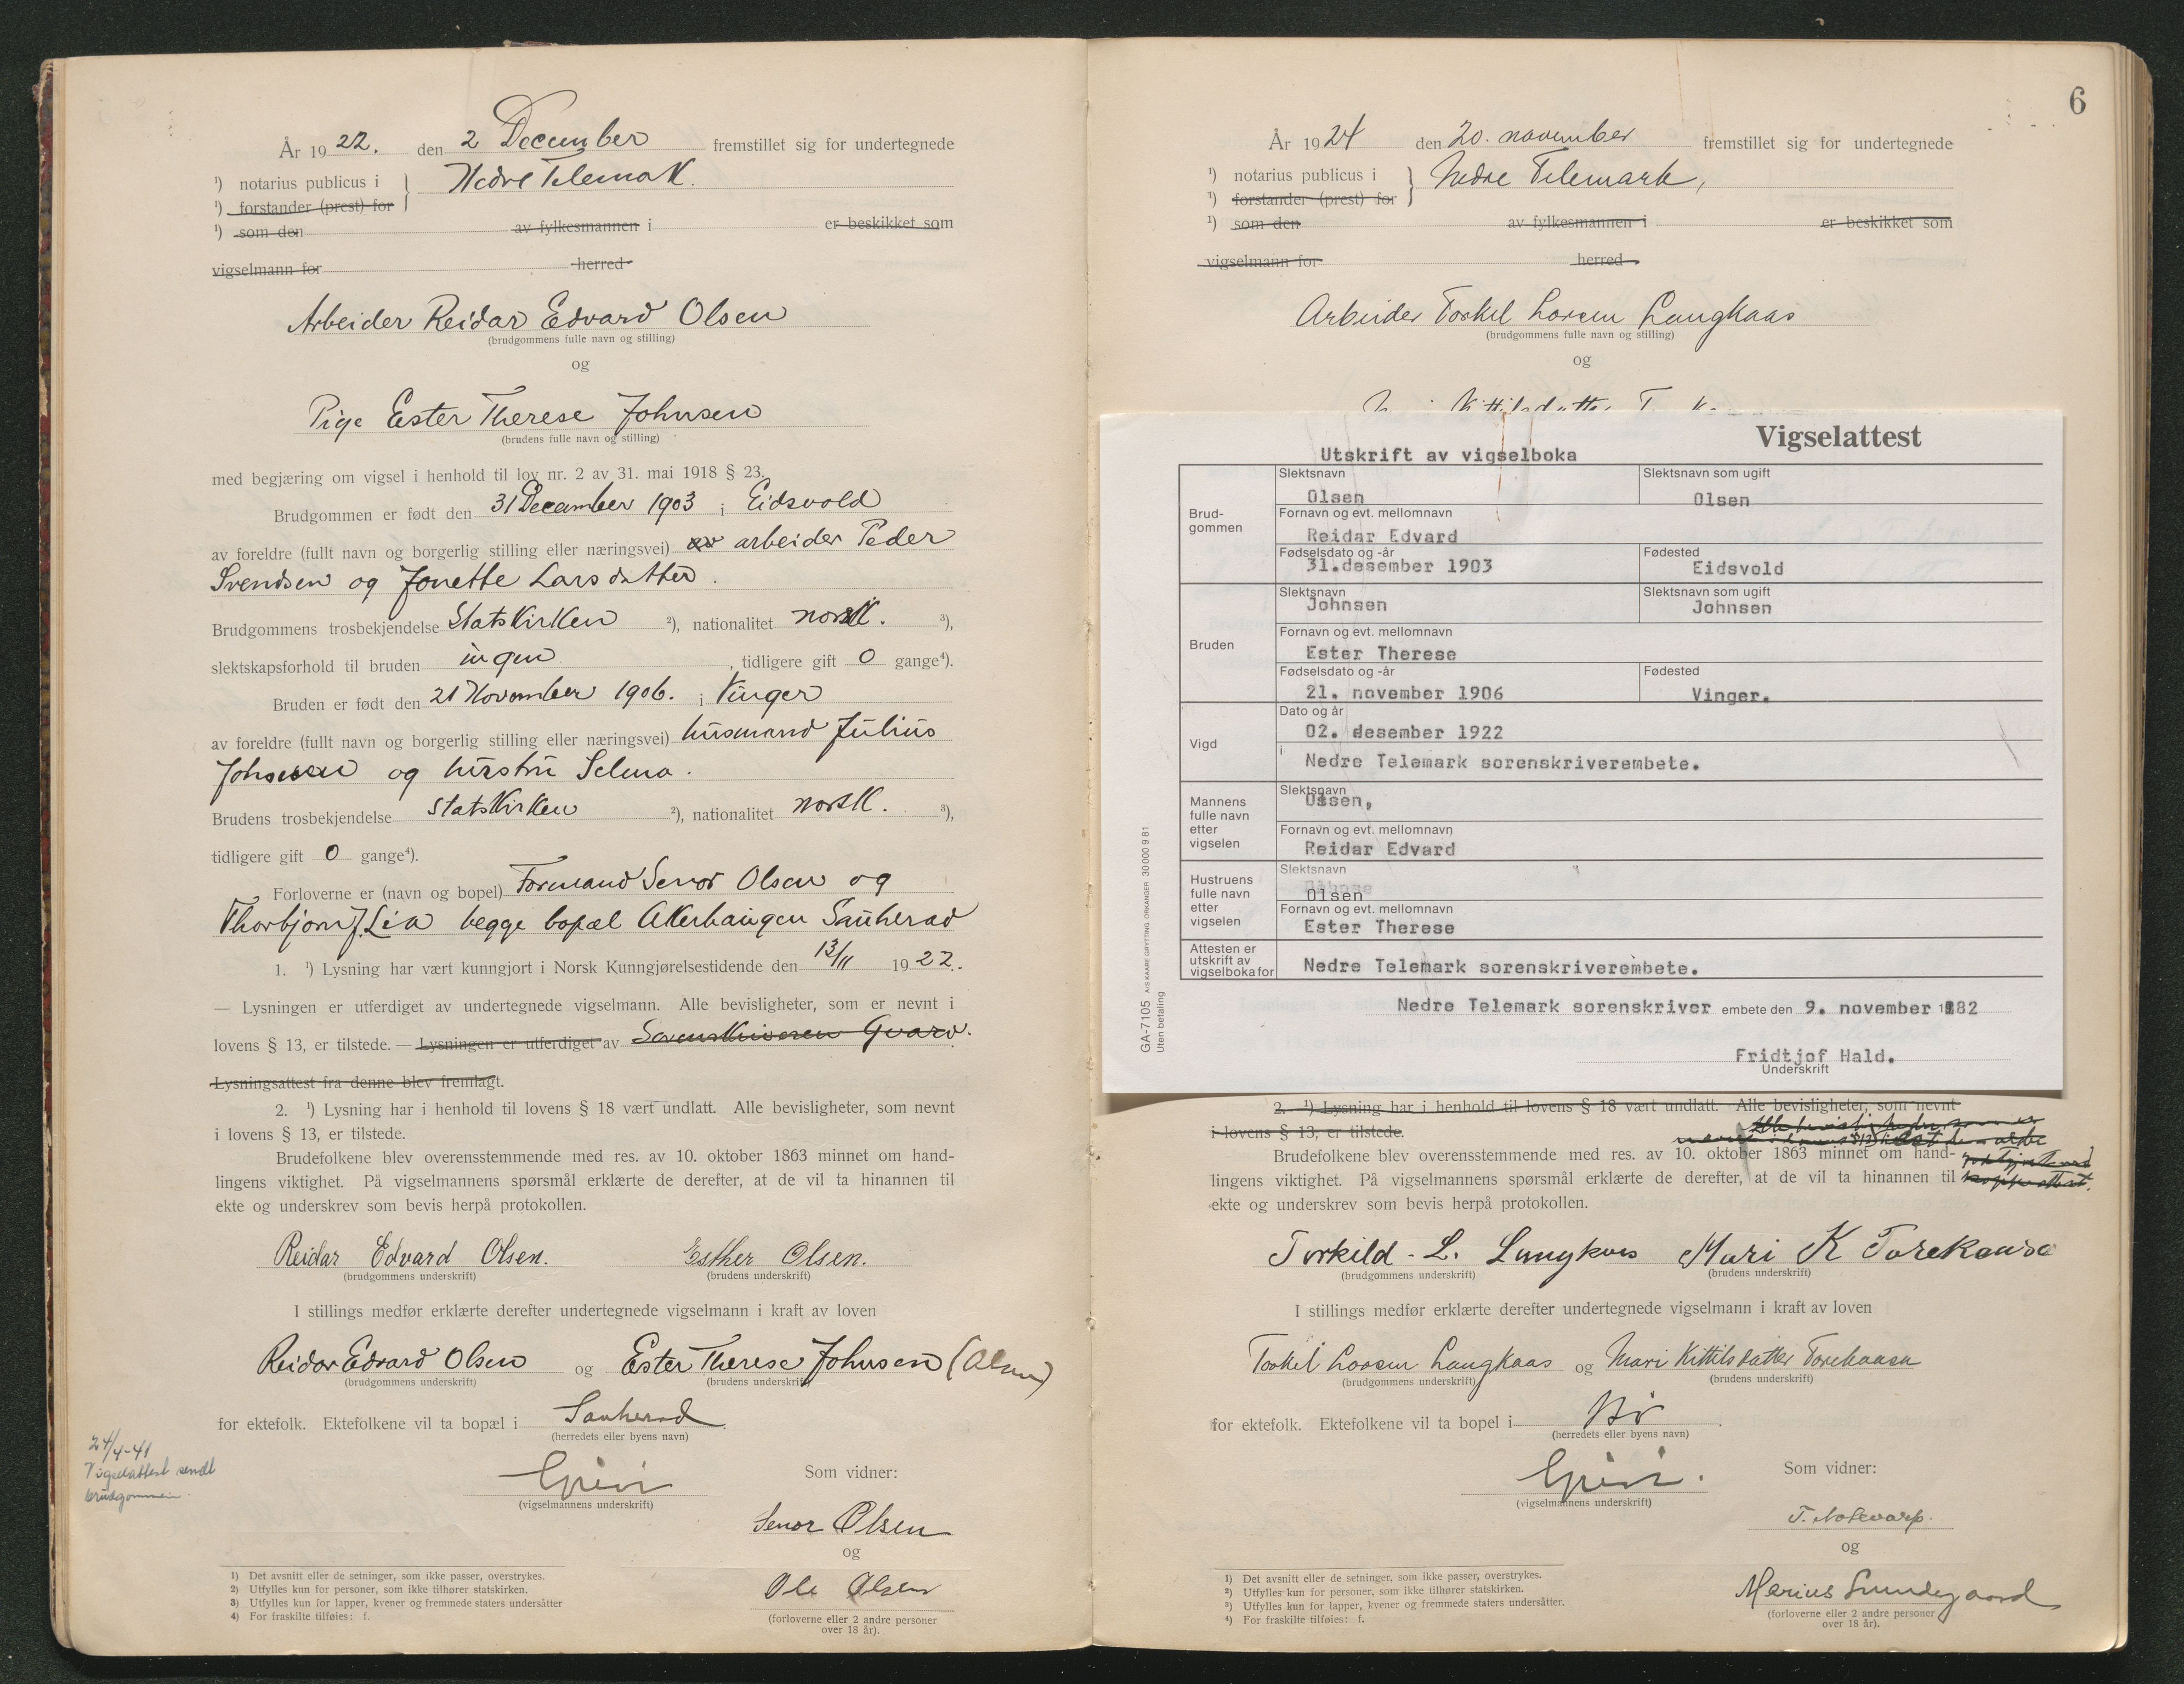 År 1922. den 2 December fremstillet sig for undertegnede
¹) notarius publicus i } Nedre Telemark.
¹) forstander (prest) for
¹) som den av fylkesmannen i er beskikket som
vigselmann for herred
Arbeider Reidar Edvard Olsen
(brudgommens fulle navn og stilling)
og
Pige Ester Therese Johnsen
(brudens fulle navn og stilling)
med begjæring om vigsel i henhold til lov nr. 2 av 31. mai 1918 § 23.
Brudgommen er født den 31 December 1903 i Eidsvold
av foreldre (fullt navn og borgerlig stilling eller næringsvei) av arbeider Peder
Svendsen og Jonette Larsdatter.
Brudgommens trosbekjendelse Statskirken ²), nationalitet norsk. ³),
slektskapsforhold til bruden ingen, tidligere gift 0 gange⁴).
Bruden er født den 21 November 1906. i Vinger
av foreldre (fullt navn og borgerlig stilling eller næringsvei) husmand Julius
Johnsen og hustru Selma.
Brudens trosbekjendelse statskirken ²), nationalitet norsk. ³),
tidligere gift 0 gange⁴).
Forloverne er (navn og bopel) Formand Senor Olsen og
Thorbjørn J. Lia begge bopæl Akerhaugen Sauherad
1. ¹) Lysning har vært kunngjort i Norsk Kunngjørelsestidende den 13/11 1922.
— Lysningen er utferdiget av undertegnede vigselmann. Alle bevisligheter, som er nevnt i
lovens § 13, er tilstede. — Lysningen er utferdiget av Sorenskriveren Gvarv.
Lysningsattest fra denne blev fremlagt.
2. ¹) Lysning har i henhold til lovens § 18 vært undlatt. Alle bevisligheter, som nevnt
i lovens § 13, er tilstede.
Brudefolkene blev overensstemmende med res. av 10. oktober 1863 minnet om hand-
lingens viktighet. På vigselmannens spørsmål erklærte de derefter, at de vil ta hinannen til
ekte og underskrev som bevis herpå protokollen.
Reidar Edvard Olsen. Esther Olsen.
(brudgommens underskrift) (brudens underskrift)
I stillings medfør erklærte derefter undertegnede vigselmann i kraft av loven
Reidar Edvard Olsen og Ester Therese Johnsen (Olsen)
(brudgommens underskrift) (brudens underskrift)
for ektefolk. Ektefolkene vil ta bopæl i Sauherad
(herredets eller byens navn)
24/4-41
Vigselattest sendt
brudgommen.
(vigselmannens underskrift)
Som vidner:
Senor Olsen
og
Ole Olsen
(forloverne eller 2 andre personer
over 18 år).
1) Det avsnitt eller de setninger, som ikke passer, overstrykes.
2) Utfylles kun for personer, som ikke tilhører statskirken.
3) Utfylles kun for lapper, kvener og fremmede staters undersåtter
4) For fraskilte tilføies: f.
6
År 1924 den 20. november fremstillet sig for undertegnede
¹) notarius publicus i } Nedre Telemark,
¹) forstander (prest) for
¹) som den av fylkesmannen i er beskikket som
vigselmann for herred
Arbeider Torkel Larsen Langkaas
(brudgommens fulle navn og stilling)
og
Vigselattest
Utskrift av vigselboka
Brud-
gommen
Slektsnavn Olsen
Slektsnavn som ugift Olsen
Fornavn og evt. mellomnavn
Reidar Edvard
Fødselsdato og -år 31.desember 1903
Fødested Eidsvold
Bruden
Slektsnavn Johnsen
Slektsnavn som ugift Johnsen
Fornavn og evt. mellomnavn
Ester Therese
Fødselsdato og -år 21. november 1906
Fødested Vinger.
Vigd
Dato og år
02. desember 1922
i
Nedre Telemark sorenskriverembete.
Mannens
fulle navn
etter
vigselen
Slektsnavn
Olsen,
Fornavn og evt. mellomnavn
Reidar Edvard
Hustruens
fulle navn
etter
vigselen
Slektsnavn
Olsen
Fornavn og evt. mellomnavn
Ester Therese
Attesten er
utskrift av
vigselboka for
Nedre Telemark sorenskriverembete.
Nedre Telemark sorenskriver embete den 9. november 1982
Fridtjof Hald.
Underskrift
GA-7105 A/S KAARE GRYTTING, ORKANGER 30 000 9 81
Uten betaling
2. ¹) Lysning har i henhold til lovens § 18 vært undlatt. Alle bevisligheter, som nevnt
i lovens § 13, er tilstede.
Brudefolkene blev overensstemmende med res. av 10. oktober 1863 minnet om hand-
lingens viktighet. På vigselmannens spørsmål erklærte de derefter, at de vil ta hinannen til
ekte og underskrev som bevis herpå protokollen.
Torkild - L. Langkaas Mari K Torekaasa
(brudgommens underskrift) (brudens underskrift)
I stillings medfør erklærte derefter undertegnede vigselmann i kraft av loven
Torkel Larsen Langkaas og Mari Kittilsdatter Torekaasa
(brudgommens underskrift) (brudens underskrift)
for ektefolk. Ektefolkene vil ta bopel i Bø
(herredets eller byens navn)
(vigselmannens underskrift)
Som vidner:
T. Notevarp.
og
Marius Sundegaard
(forloverne eller 2 andre personer
over 18 år).
1) Det avsnitt eller de setninger, som ikke passer, overstrykes.
2) Utfylles kun for personer, som ikke tilhører statskirken.
3) Utfylles kun for lapper, kvener og fremmede staters undersåtter.
4) For fraskilte tilføies: f.